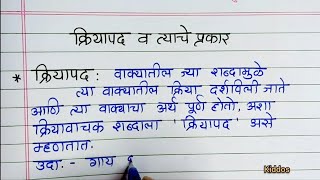 क्रियापद व त्याचे प्रकार
* क्रियापद : वाक्यातील ज्या शब्दामुळे
त्या वाक्यातील क्रिया दर्शविली जाते
आणि त्या वाक्याचा अर्थ पूर्ण होतो, अशा
क्रियावाचक शब्दाला 'क्रियापद' असे
म्हणतात.
उदा. - गाय
Kiddos